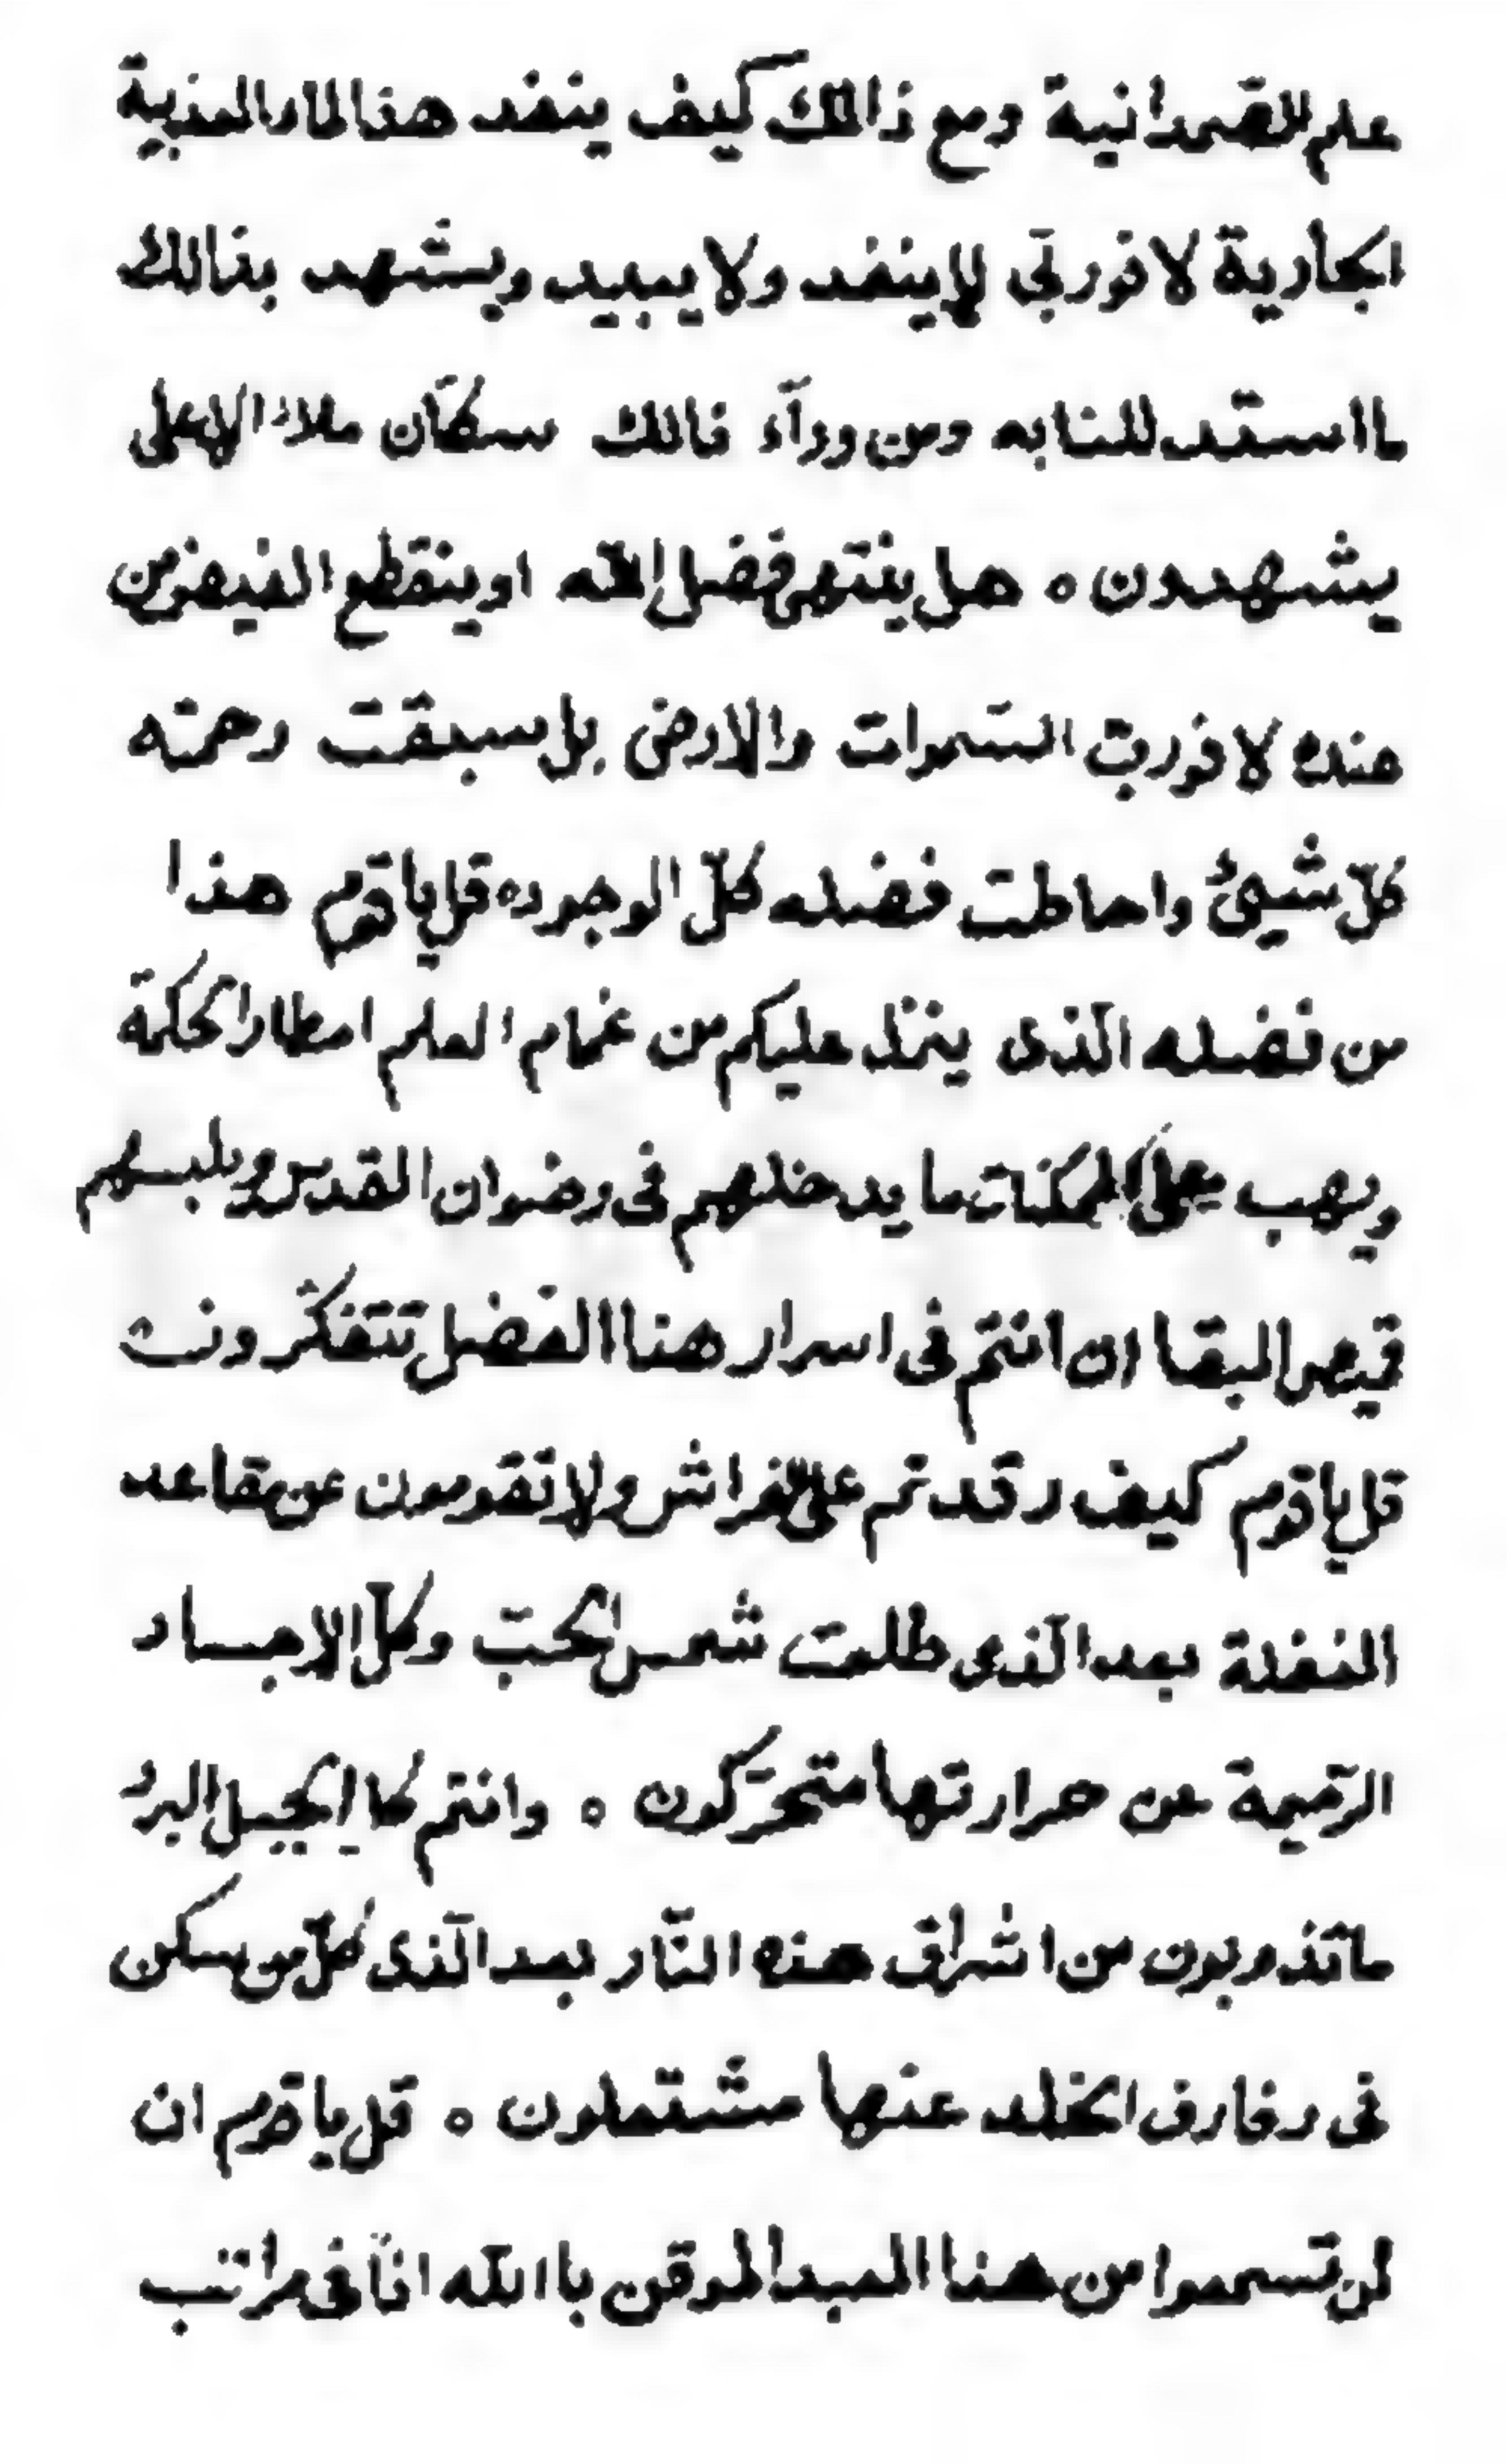 علم الصّمدانية ومع ذالك كيف ينفد هذا الماء العذبية
الجارية لا فوربّي لا ينفد ولا يبيد ويشهد بذالك
ما استدللنا به ومن ورآء ذالك سكّان ملاء الاعلى
يشهدون ه هل ينتهى فضل اللّه او ينقطع الفيض من
عنده لا فوربّ السّموات والارض بل سبقت رحمته
كلّ شيئ واحاطت فضله كلّ الوجود ه قل يا قوم هذا
من فضله الّذى ينزل عليكم من غمام العلم امطار الحكمة
ويهب على الممكنات ما يدخلهم فى رضوان القدس ويلبسهم
قميص البقا ان انتم فى اسرار هذا الفضل تتفكّرون
قل يا قوم كيف رقدتم على الفراش ولا تقومون عن مقاعد
الغفلة بعد الّذى طلعت شمس الحبّ وكلّ الاجساد
الرّميمة عن حرارتها متحرّكون ه وانتم كما الجبل البرد
ما تذوبون من اشراق هذه النّار بعد الّذى كلّ من سكن
فى رفارف الخلد عنها مشتعلون ه قل يا قوم ان
لن تسمعوا من هذا العبد الموقن باالله انّا فى مراتب